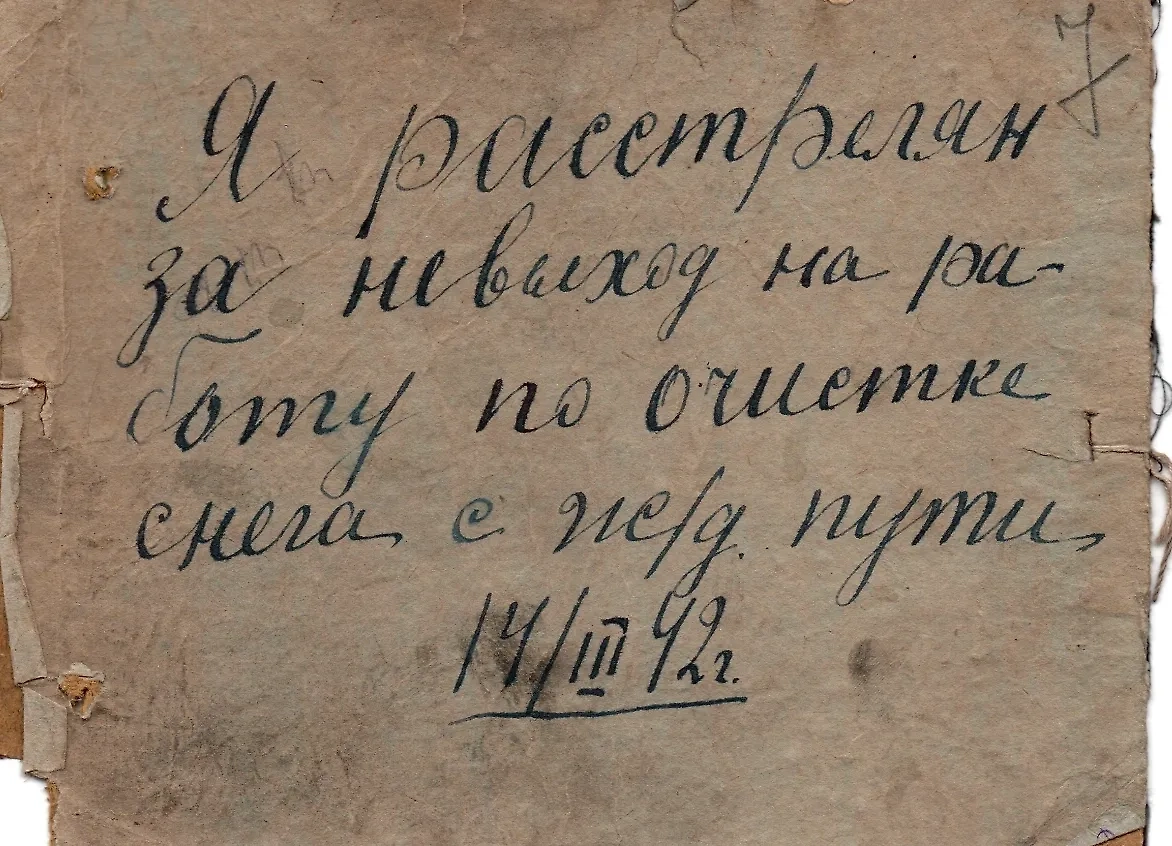 7
Я расстрелян
за невыход на ра-
боту по очистке
снега с ж/д. пути
14/III 42г.